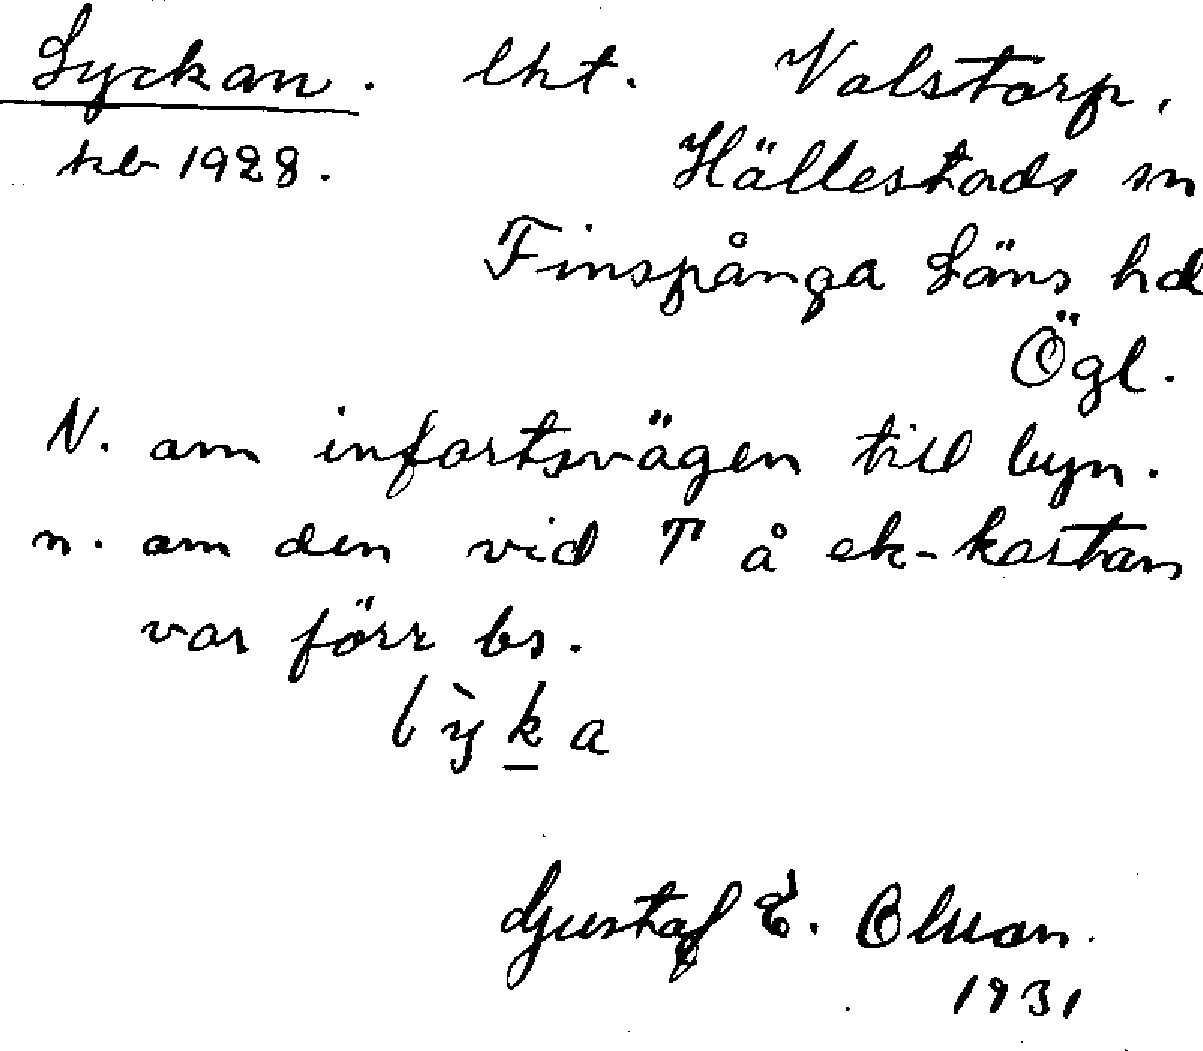 Lyckan. lht. Valstorp,
kb 1928. Hällestads sn
Finspånga Läns hd
Ögl.
N. om infartsvägen till byn.
n. om den vid T å ek-kartan
var förr bs.
lỳka
Gustaf E. Olsson.
1931